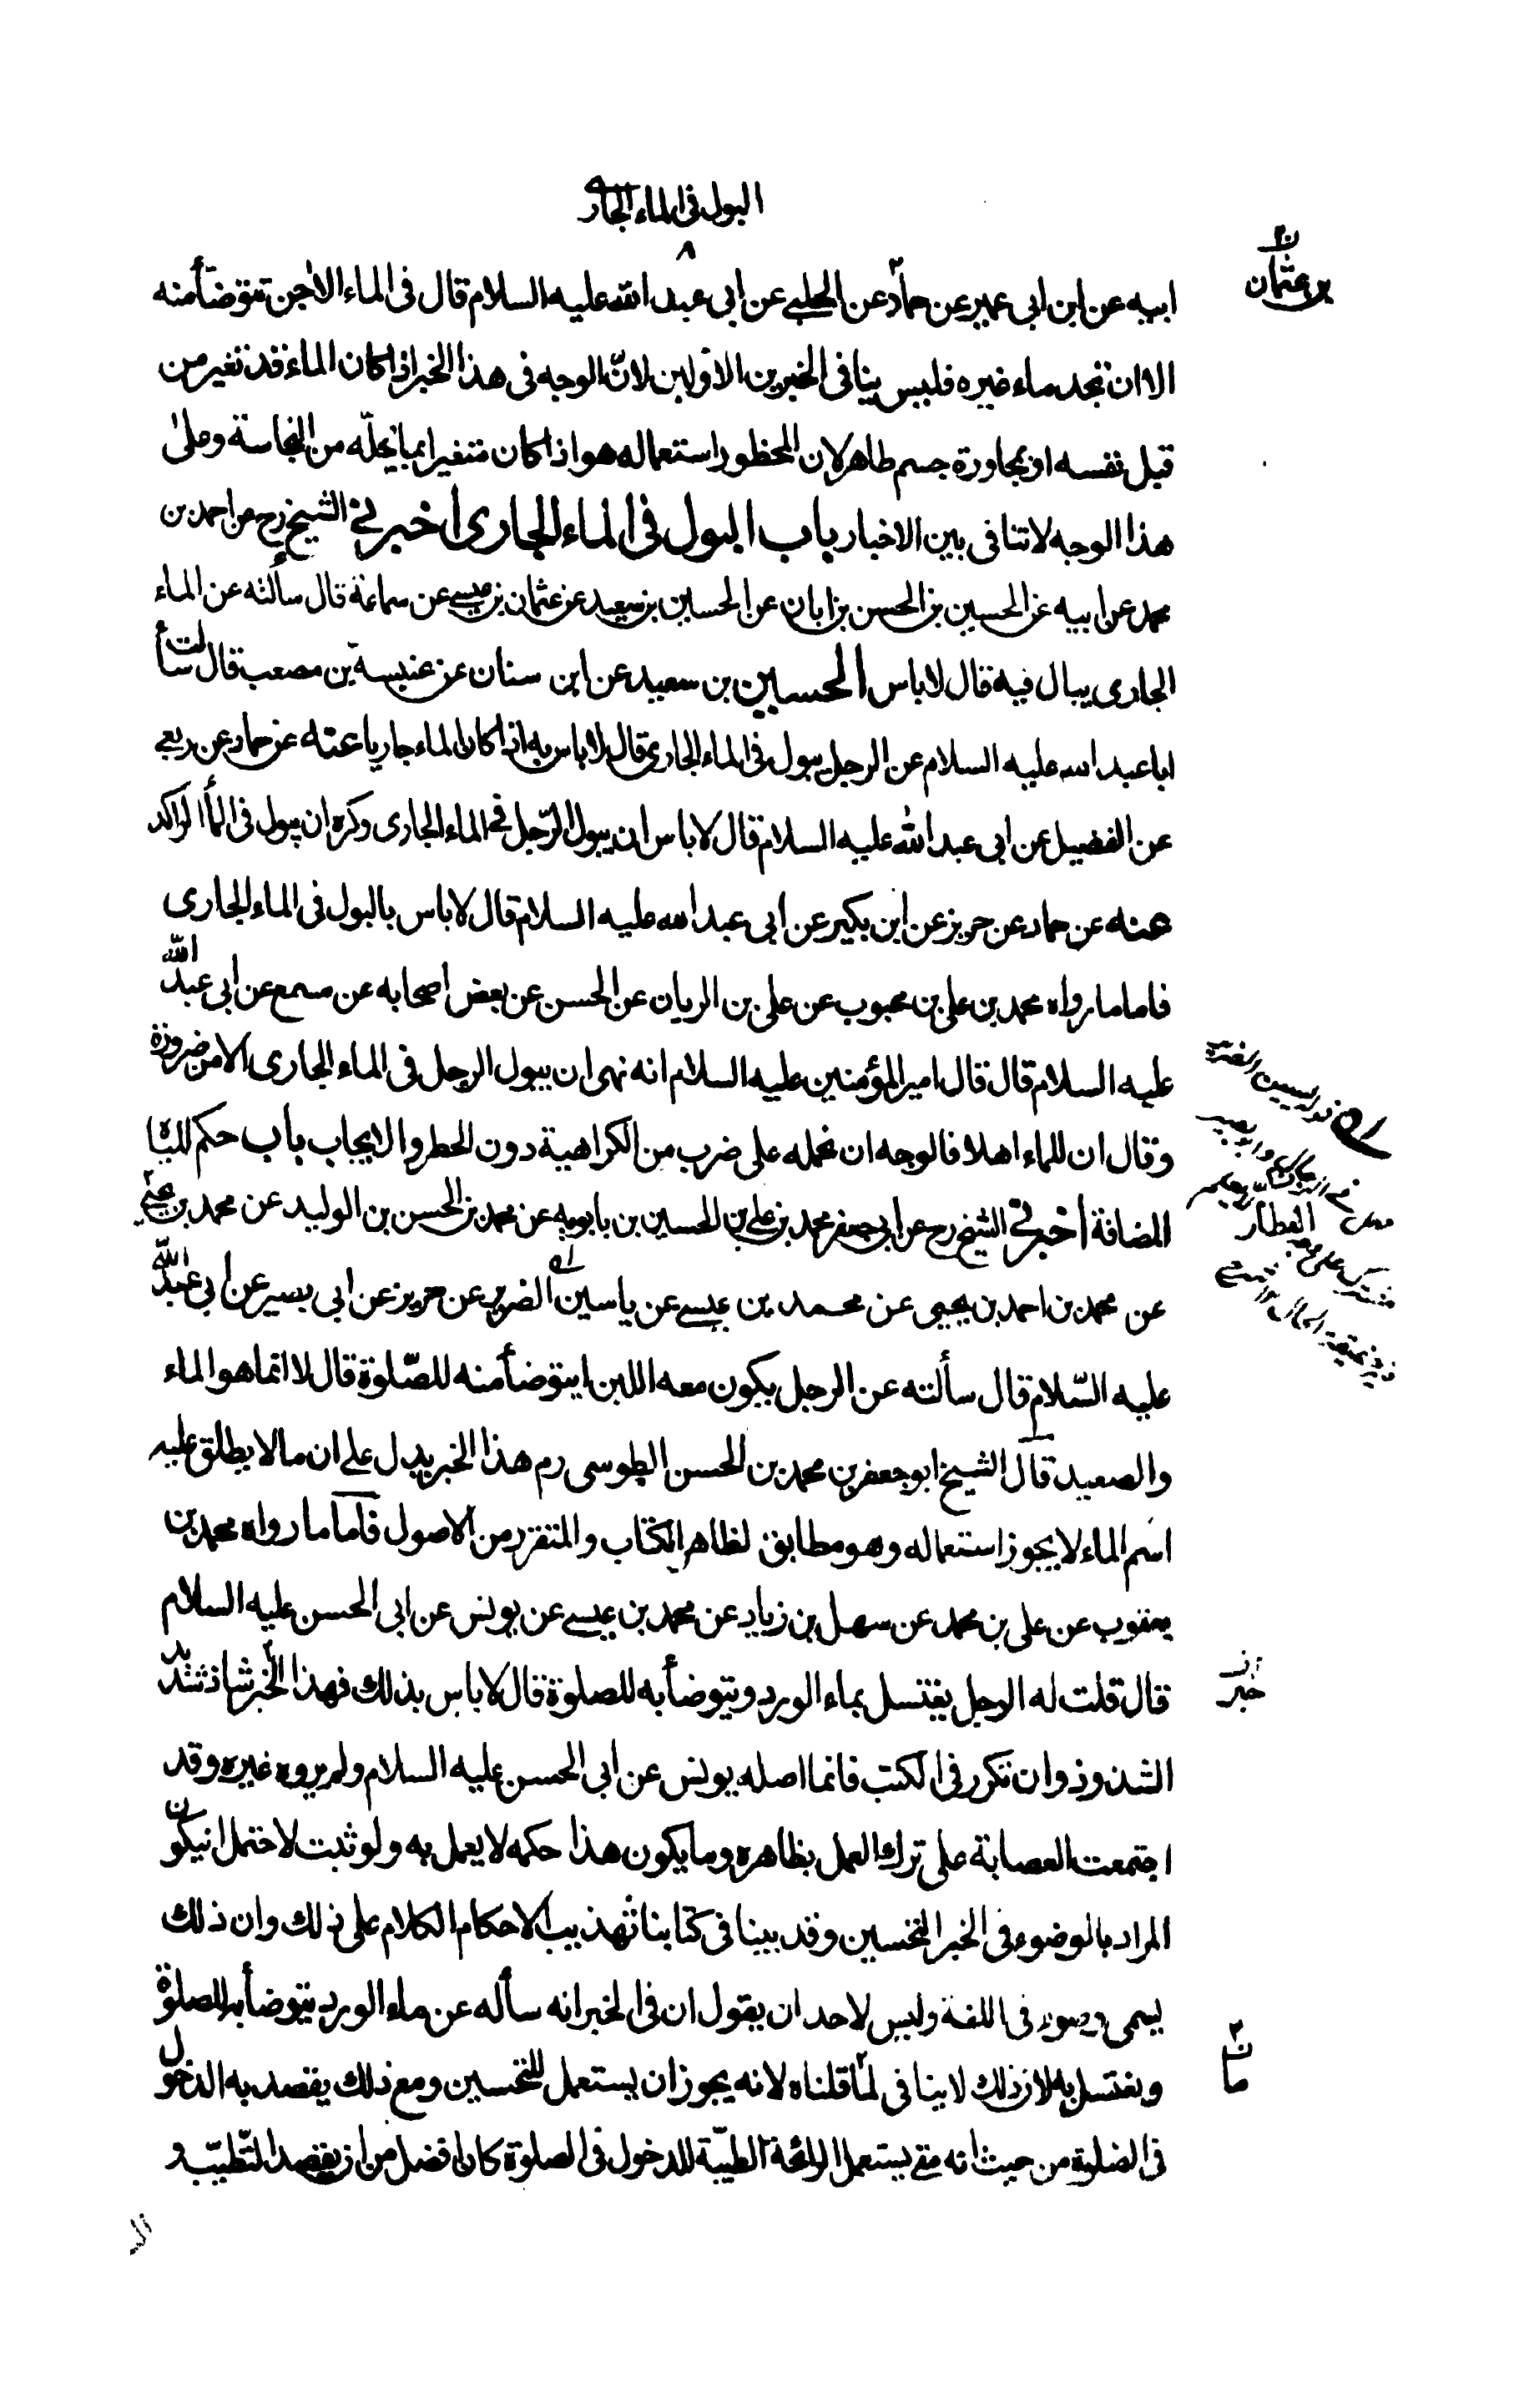 البول فى الماء الجارى
٨
ابيه عن ابن ابى عمير عن حماد عن الحلبى عن ابى عبد الله عليه السلام قال فى الماء الاجن تتوضأ منه
بن عثمان
الا ان تجد ماء غيره فليس ينافى الخبرين الاولين لانّ الوجه فى هذا الخبر اذا كان الماء قد تغير من
قبل نفسه او بمجاورة جسم طاهر لان المحظور استعماله هو اذا كان متغيرا بما يحلّه من النجاسة وعلى
هذا الوجه لا تنافى بين الاخبار باب البول فى الماء الجارى اخبرنى الشيخ رح عن احمد بن
محمد عن ابيه عن الحسين بن الحسن بن ابان عن الحسين بن سعيد عن عثمان بن عيسى عن سماعة قال سألته عن الماء
الجارى يبال فيه قال لا باس الحسين بن سعيد عن ابن سنان عن عنبسة بن مصعب قال سألت
ابا عبد الله عليه السلام عن الرجل يبول فى الماء الجارى قال لا باس به اذا كان الماء جاريا عنه عن حماد عن ربعى
عن الفضيل عن ابى عبد الله عليه السلام قال لا باس ان يبول الرّجل فى الماء الجارى وكره ان يبول فى الماء الراكد
عنه عن حماد عن حريز عن ابن بكير عن ابى عبد الله عليه السلام قال لا باس بالبول فى الماء الجارى
فاما ما رواه محمد بن على بن محبوب عن على بن الريان عن الحسن عن بعض اصحابه عن مسمع عن ابى عبد الله
عليه السلام قال قال امير المؤمنين عليه السلام انه نهى ان يبول الرجل فى الماء الجارى الا من ضرورة
وقال ان للماء اهلا فالوجه ان نحمله على ضرب من الكراهية دون الحظر والايجاب باب حكم المياه
المضافة اخبرنى الشيخ رح عن ابى جعفر محمد بن على بن الحسين بن بابويه عن محمد بن الحسن بن الوليد عن محمد بن يحيى
العطار
عن محمد بن احمد بن يحيى عن محمد بن عيسى عن ياسين الضرير عن حريز عن ابى بصير عن ابى عبد الله
عليه السّلام قال سألته عن الرجل يكون معه اللبن ايتوضأ منه للصّلوة قال لا انما هو الماء
والصعيد قال الشيخ ابو جعفر بن محمد بن الحسن الطوسى رم هذا الخبر يدل على ان ما لا يطلق عليه
اسم الماء لا يجوز استعماله وهو مطابق لظاهر الكتاب والمتقرر من الاصول فاما ما رواه محمد بن
يعقوب عن على بن محمد عن سهل بن زياد عن محمد بن عيسى عن يونس عن ابى الحسن عليه السلام
قال قلت له الرجل يغتسل بماء الورد ويتوضأ به للصلوة قال لا باس بذلك فهذا الخبر شاذ شديد
خبر
الشذوذ وان تكرر فى الكتب فانما اصله يونس عن ابى الحسن عليه السلام ولم يروه غيره وقد
اجتمعت العصابة على ترك العمل بظاهره وما يكون هذا حكمه لا يعمل به ولو ثبت لاحتمل ان يكون
المراد بالوضوء فى الخبر التحسين وقد بينا فى كتابنا تهذيب الاحكام الكلام على ذلك وان ذلك
يسمى وضوء فى اللغة وليس لاحد ان يقول ان فى الخبر انه سأله عن ماء الورد يتوضأ به للصلوة
ويغتسل به لان ذلك لا ينافى لما قلناه لانه يجوز ان يستعمل للتحسين ومع ذلك يقصد به الدخول
ما
فى الصلوة من حيث انه متى يستعمل الرائحة الطيّبة للدخول فى الصلوة كان افضل من ان يقصد التّطيّب و